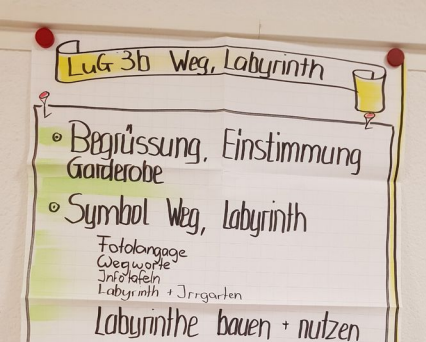 LuG 3b Weg, Labyrinth
Begrüssung, Einstimmung
Garderobe
Symbol Weg, Labyrinth
Fotolangage
Wegworte
Infotafeln
Labyrinth + Irrgarten
Labyrinthe bauen + nutzen